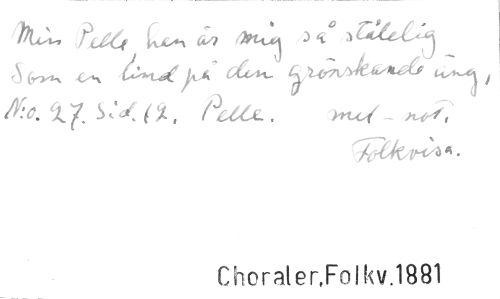 Min Pelle, han är mig så ståtelig
Som en lind på den grönskande äng,
N:o. 27. Sid. 12. Pelle. mel-not.
Folkvisa.
Choraler,Folkv.1881